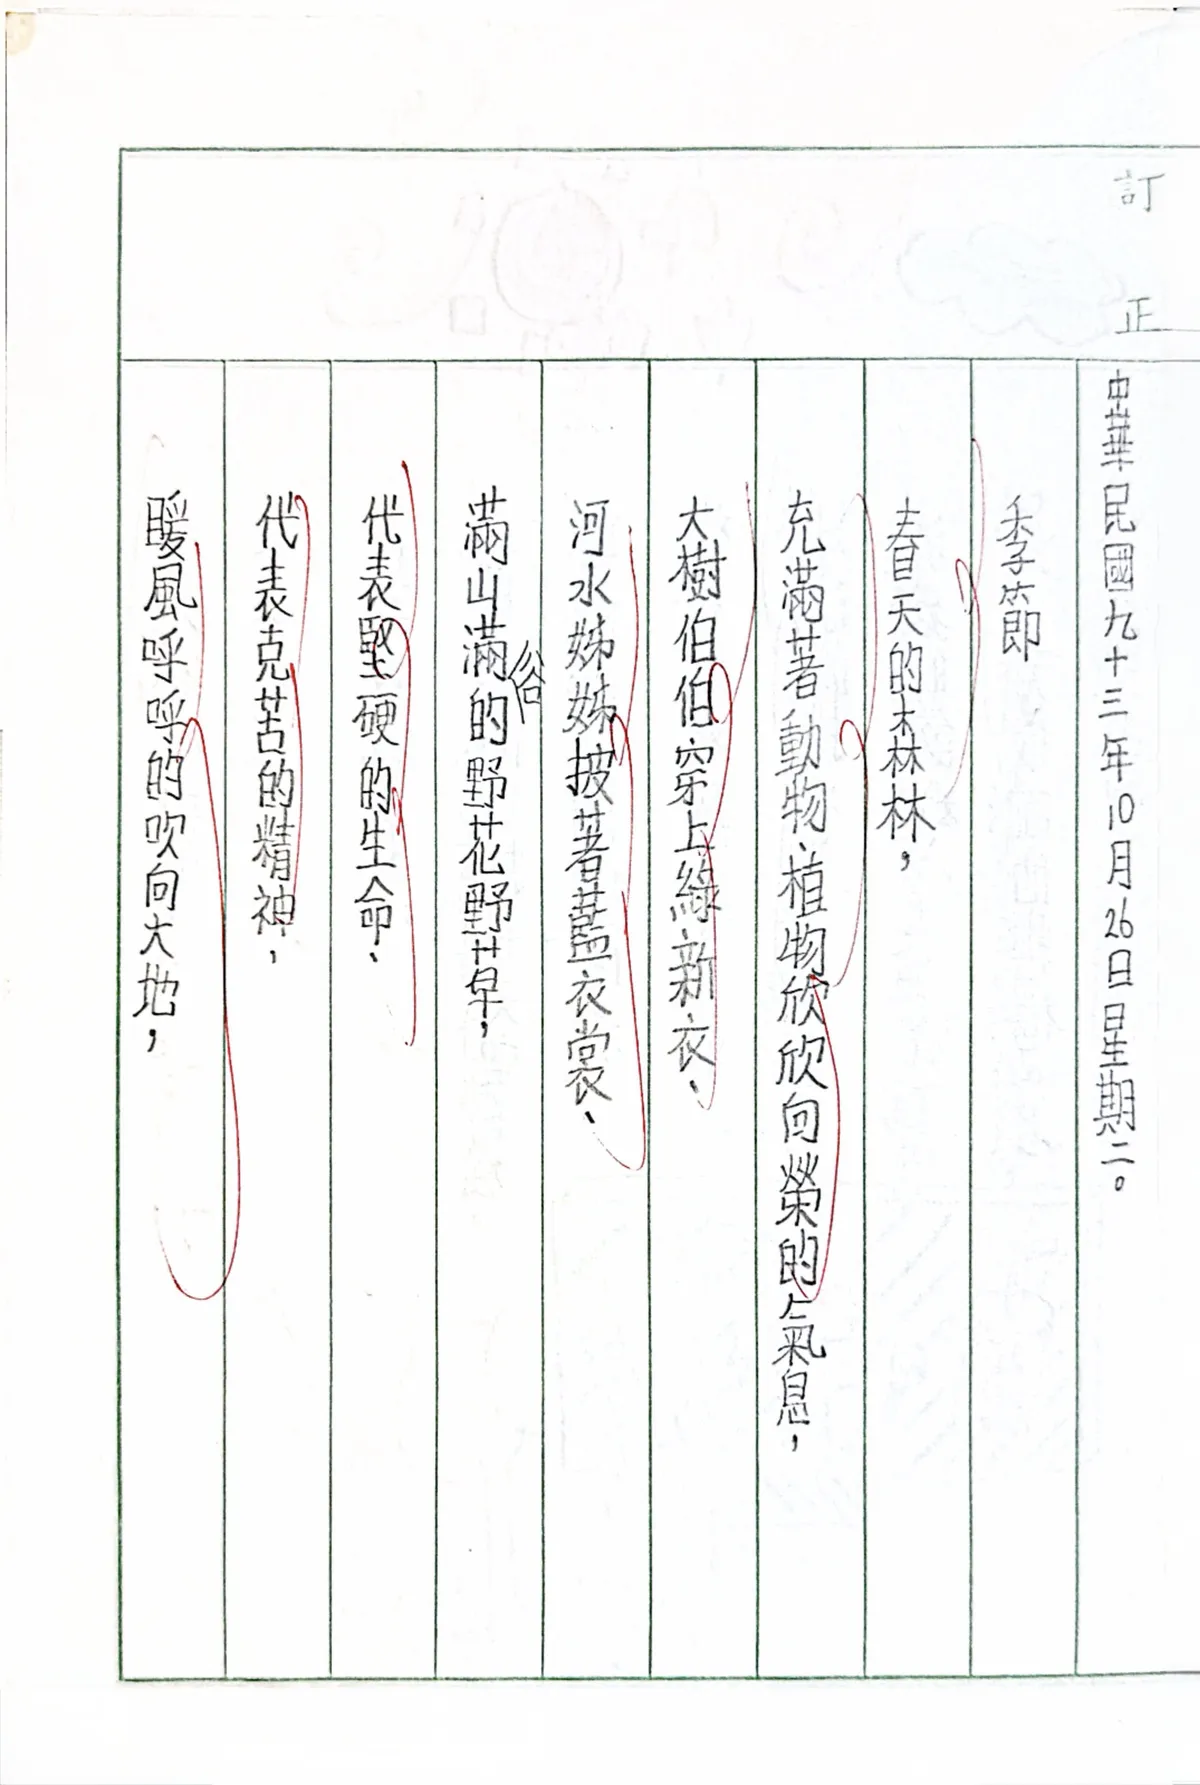 訂正
中華民國九十三年10月26日星期二。
季節
春天的森林，
充滿著動物、植物欣欣向榮的氣息，
大樹伯伯穿上綠新衣、
河水姊姊披著藍衣裳、
滿山滿谷的野花野草，
代表堅硬的生命、
代表克苦的精神，
暖風呼呼的吹向大地，